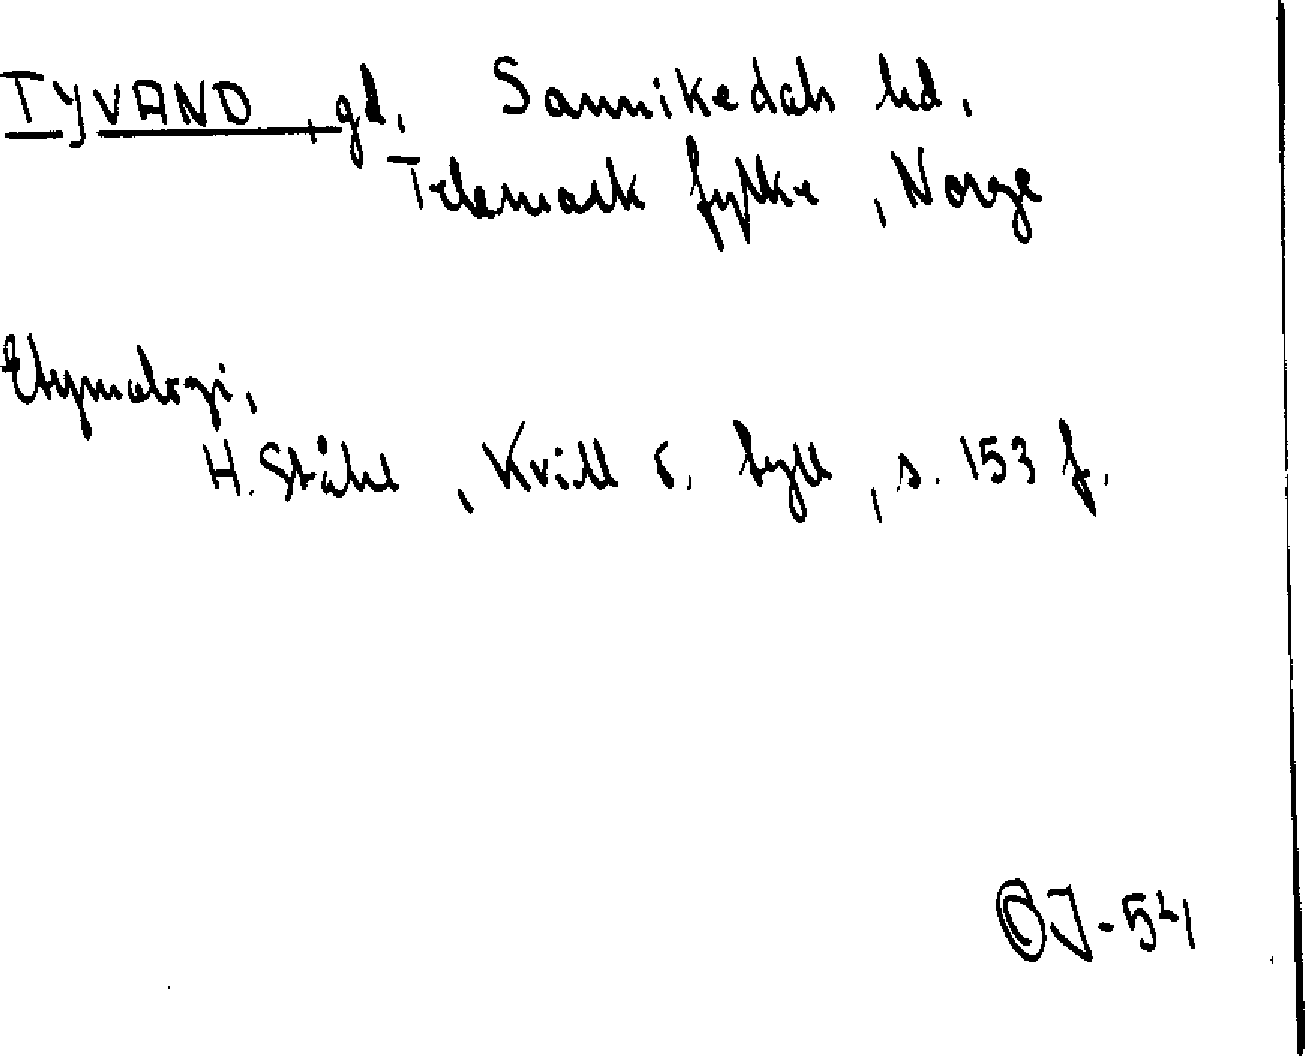 TYVAND, gd, Sannikedals hd.
Telemark fylke, Norge
Etymologi,
H. Ståhl, Kvill o. tyll, s. 153 f.
J-54